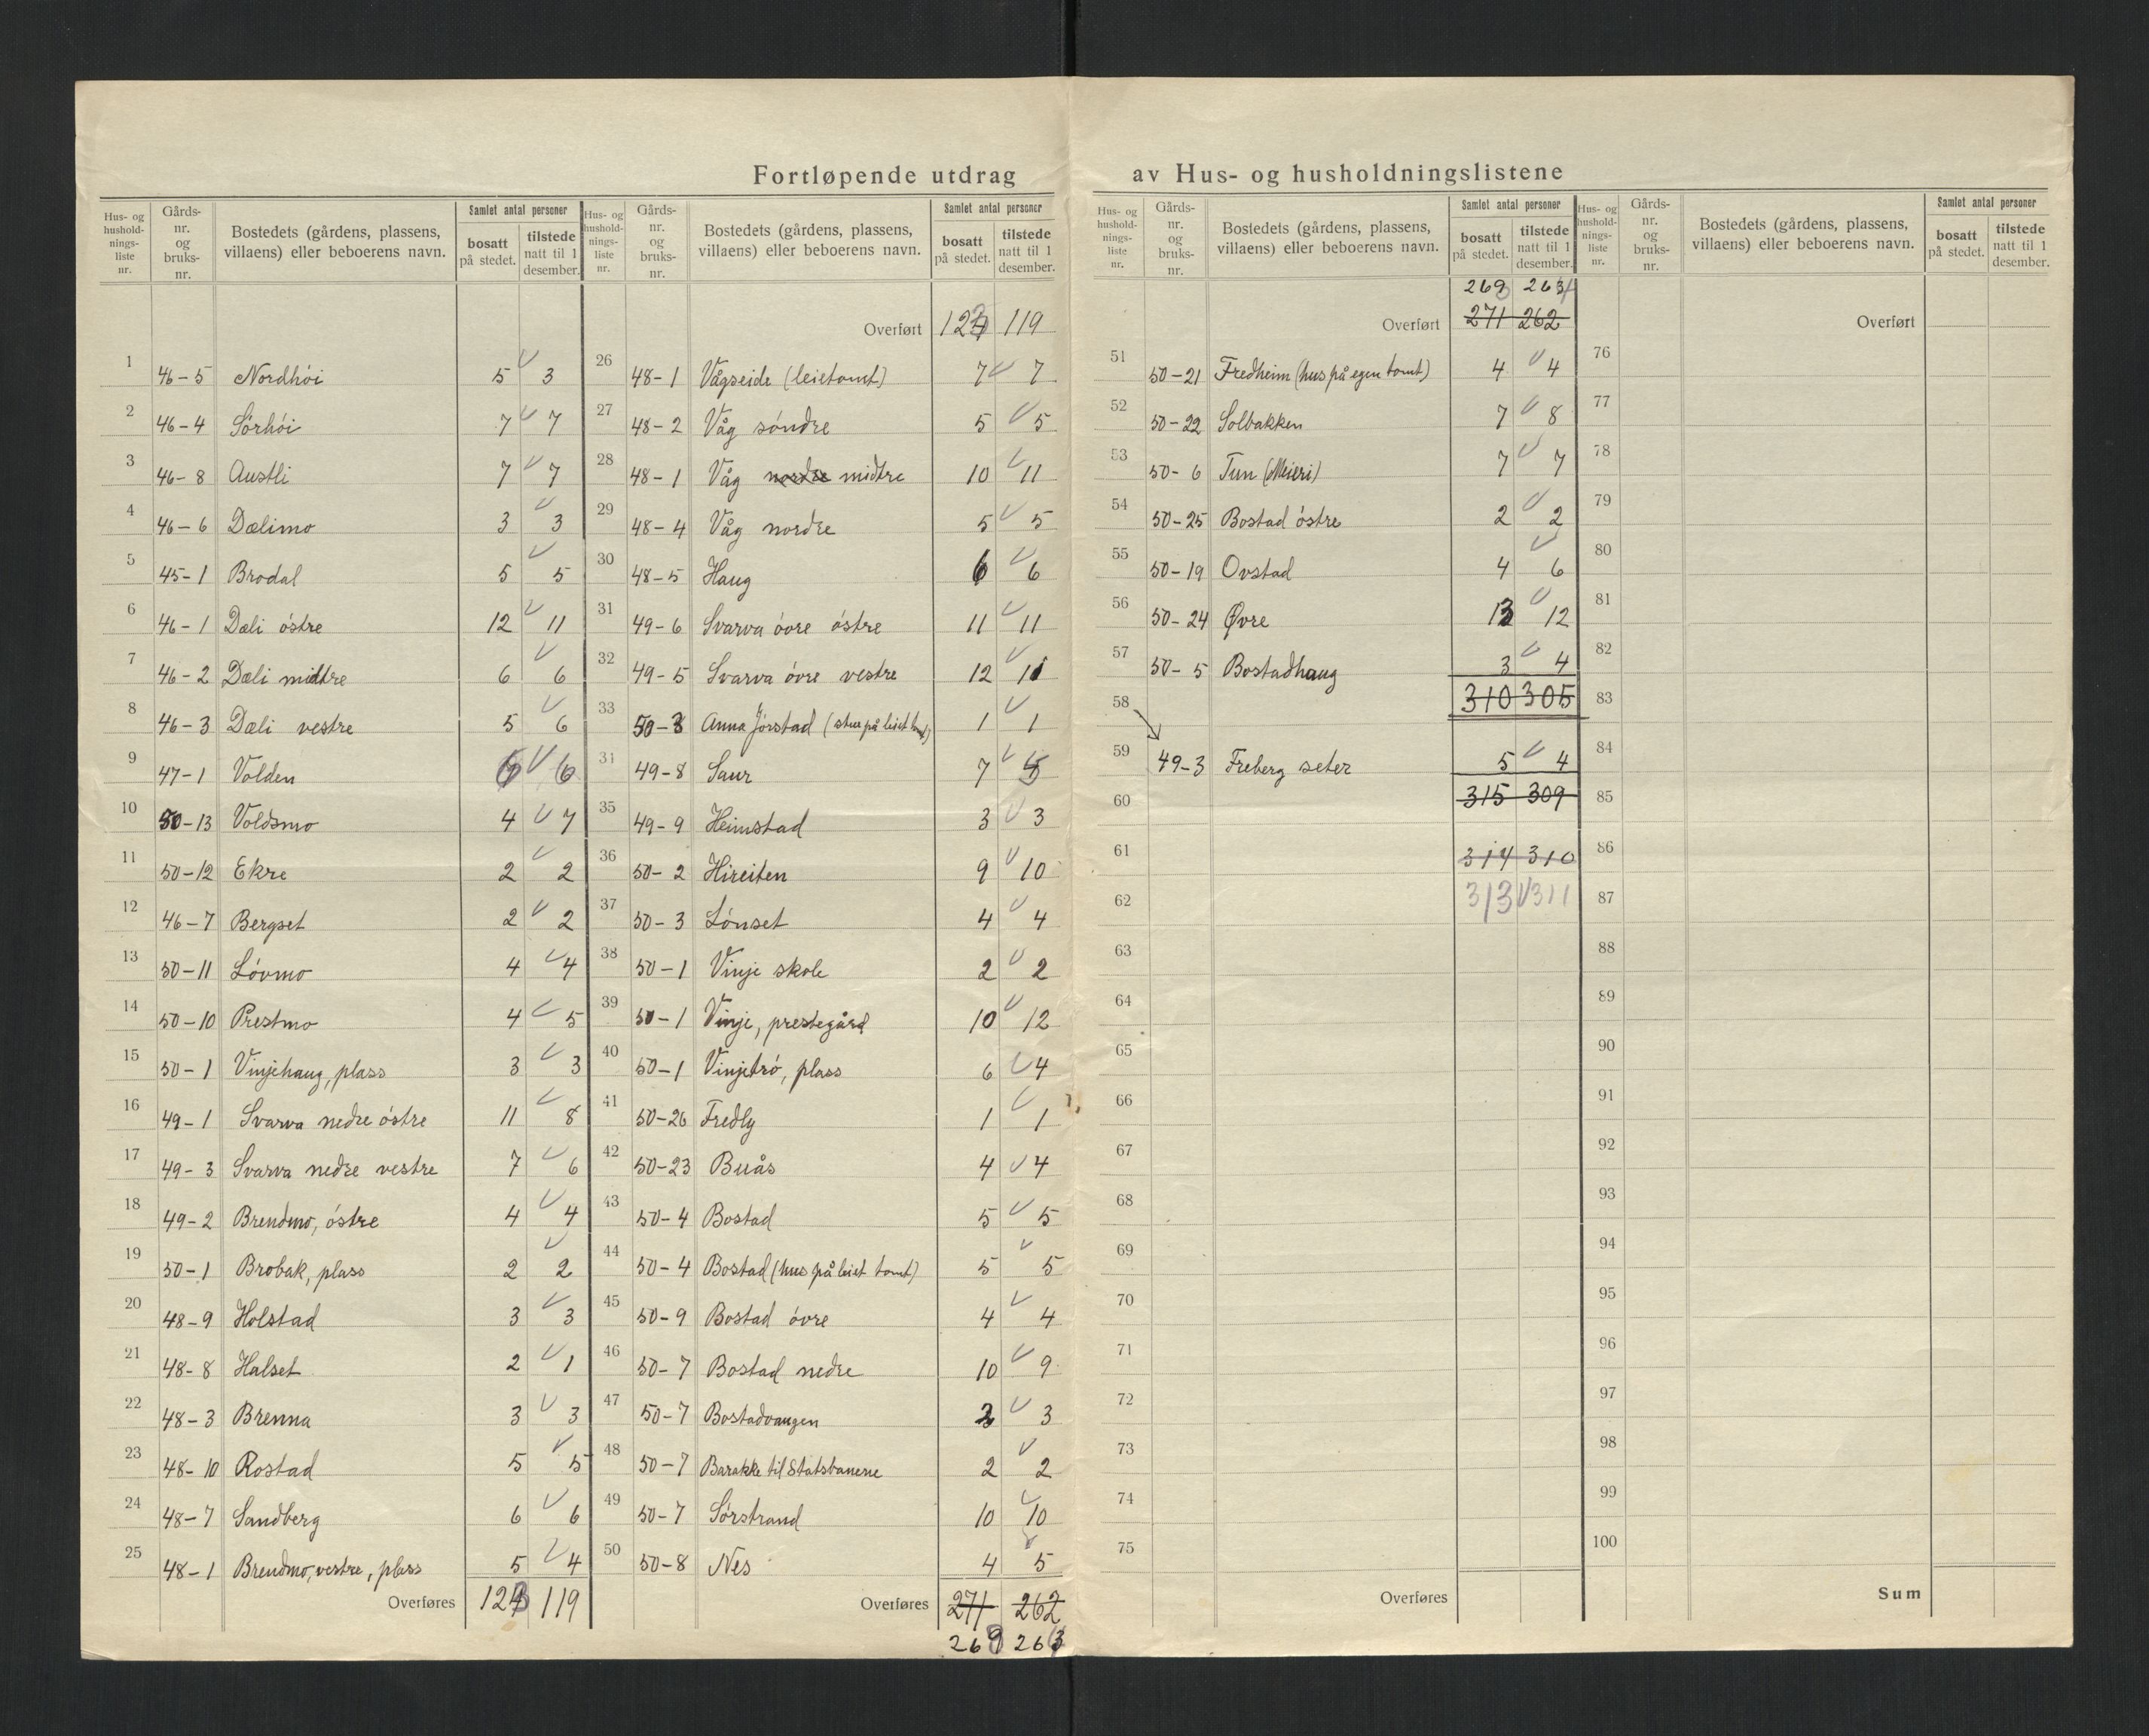 Fortløpende utdrag av Hus- og husholdningslistene
Hus- og hushold-nings-liste nr. Gårds-nr. og bruks-nr. Bostedets (gårdens, plassens, villaens) eller beboerens navn. Samlet antal personer bosatt på stedet. tilstede natt til 1 desember.
1 46-5 Nordhöi 5 3
2 46-4 Sörhöi 7 7
3 46-8 Austli 7 7
4 46-6 Dælimo 3 3
5 45-1 Brodal 5 5
6 46-1 Dæli östre 12 11
7 46-2 Dæli midtre 6 6
8 46-3 Dæli vestre 5 6
9 47-1 Volden 6 6
10 50-13 Voldsmo 4 7
11 50-12 Ekre 2 2
12 46-7 Bergset 2 2
13 50-11 Lövmo 4 4
14 50-10 Prestmo 4 5
15 50-1 Vinjehaug, plass 3 3
16 49-1 Svarva nedre östre 11 8
17 49-3 Svarva nedre vestre 7 6
18 49-2 Brendmo, östre 4 4
19 50-1 Brobak, plass 2 2
20 48-9 Holstad 3 3
21 48-8 Halset 2 1
22 48-3 Brenna 3 3
23 48-10 Rostad 5 5
24 48-7 Sandberg 6 6
25 48-1 Brendmo, vestre, plass 5 4
Overføres 123 119
Hus- og hushold-nings-liste nr. Gårds-nr. og bruks-nr. Bostedets (gårdens, plassens, villaens) eller beboerens navn. Samlet antal personer bosatt på stedet. tilstede natt til 1 desember.
Overført 123 119
26 48-1 Vågseide (leietomt) 7 7
27 48-2 Våg söndre 5 5
28 48-1 Våg nordre midtre 10 11
29 48-4 Våg nordre 5 5
30 48-5 Haug 6 6
31 49-6 Svarva övre östre 11 11
32 49-5 Svarva övre vestre 12 11
33 50-3 Anna Jörstad (stue på leiet tomt) 1 1
34 49-8 Saur 7 5
35 49-9 Heimstad 3 3
36 50-2 Hireiten 9 10
37 50-3 Lönset 4 4
38 50-1 Vinje skole 2 2
39 50-1 Vinje, prestegård 10 12
40 50-1 Vinjetrö, plass 6 4
41 50-26 Fredly 1 1
42 50-23 Buås 4 4
43 50-4 Bostad 5 5
44 50-4 Bostad (hus på leiet tomt) 5 5
45 50-9 Bostad övre 4 4
46 50-7 Bostad nedre 10 9
47 50-7 Bostadvangen 3
48 50-7 Barakke til Statsbanene 2 2
49 50-7 Sörstrand 10 10
50 50-8 Nes 4 5
Overføres 271 262
269 263
Hus- og hushold-nings-liste nr. Gårds-nr. og bruks-nr. Bostedets (gårdens, plassens, villaens) eller beboerens navn. Samlet antal personer bosatt på stedet. tilstede natt til 1 desember.
269 263
Overført 271 262
51 50-21 Fredheim (hus på egen tomt) 4 4
52 50-22 Solbakken 7 8
53 50-6 Tun (Meieri) 7 7
54 50-25 Bostad östre 2 2
55 50-19 Ovstad 4 6
56 50-24 Øvre 13 12
57 50-5 Bostadhaug 3 4
58 310 305
59 49-3 Freberg seter 5 4
60 315 309
61 314 310
62 313 311
63
64
65
66
67
68
69
70
71
72
73
74
75
Overføres
Hus- og hushold-nings-liste nr. Gårds-nr. og bruks-nr. Bostedets (gårdens, plassens, villaens) eller beboerens navn. Samlet antal personer bosatt på stedet. tilstede natt til 1 desember.
Overført
76
77
78
79
80
81
82
83
84
85
86
87
88
89
90
91
92
93
94
95
96
97
98
99
100
Sum